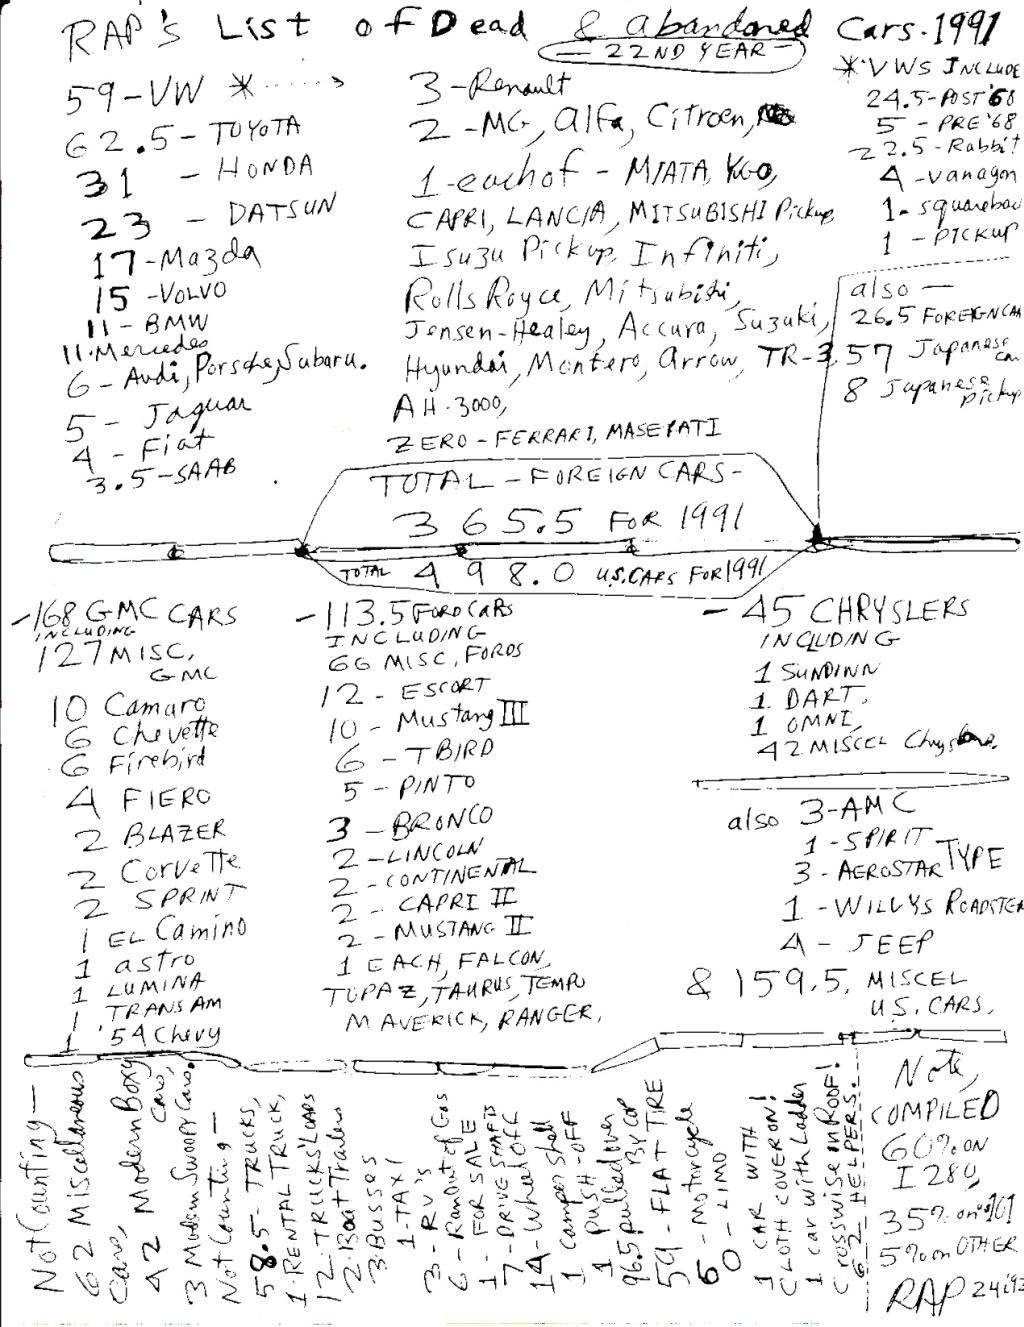 RAP's List of Dead & abandoned Cars. 1991
- 22ND YEAR -
59-VW *······>
62.5-TOYOTA
31 - HONDA
23 - DATSUN
17-Mazda
15-VOLVO
11-BMW
11-Mercedes
6-Audi, Porsche, Subaru.
5-Jaguar
4-Fiat
3.5-SAAB
3-Renault
2-MG, alfa, Citroen,
1-each of - MIATA, YUGO,
CAPRI, LANCIA, MITSUBISHI Pickup
Isuzu Pickup, Infiniti,
Rolls Royce, Mitsubishi,
Jensen-Healey, Accura, Suzuki,
Hyundai, Montero, Arrow, TR-3,
AH-3000,
ZERO-FERRARI, MASERATI
*VWS INCLUDE
24.5-POST '68
5 - PRE '68
22.5-Rabbit
4-vanagon
1-squareback
1-PICKUP
also —
26.5 FOREIGN CAR
57 Japanese car
8 Japanese pickup
TOTAL-FOREIGN CARS-
365.5 FOR 1991
TOTAL 498.0 U.S. CARS FOR 1991
-168 GMC CARS
INCLUDING
127 MISC, GMC
10 Camaro
6 Chevette
6 Firebird
4 FIERO
2 BLAZER
2 Corvette
2 SPRINT
1 EL Camino
1 astro
1 LUMINA
1 TRANS AM
1 '54 Chevy
-113.5 FORD CARS
INCLUDING
66 MISC, FORDS
12-ESCORT
10-Mustang III
6-TBIRD
5-PINTO
3-BRONCO
2-LINCOLN
2-CONTINENTAL
2-CAPRI II
2-MUSTANG II
1 EACH, FALCON,
TOPAZ, TAURUS, TEMPO
MAVERICK, RANGER,
-45 CHRYSLERS
INCLUDING
1 SUNDINN
1 DART,
1 OMNI,
42 MISCEL
also 3-AMC
1-SPIRIT
3-AEROSTAR TYPE
1-WILLYS ROADSTER
4-JEEP
& 159.5, MISCEL
U.S. CARS,
Not Counting —
62 Miscellaneous
Cars,
42 Modern Boxy Cars,
3 Modern Swoopy Cars.
Not Counting —
58.5-TRUCKS,
1-RENTAL TRUCK,
12-TRUCKS' LOADS
2-Boat Trailers
3 BUSSES
1-TAXI
3-RV's
6-Ran out of Gas
1-FOR SALE
7-DRIVE SHAFTS
14-Wheel OFF
1 Camper Shell
1 PUSH-OFF
96.5 pulled over By COP
59-FLAT TIRE
6-Motorcycle
0-LIMO
1 CAR WITH
CLOTH COVER ON!
1 car with Ladder
Crosswise in ROOF!
62 HELPERS.
Note,
COMPILED
60% ON
I 280,
35% on 101
5% on OTHER
RAP 24i92